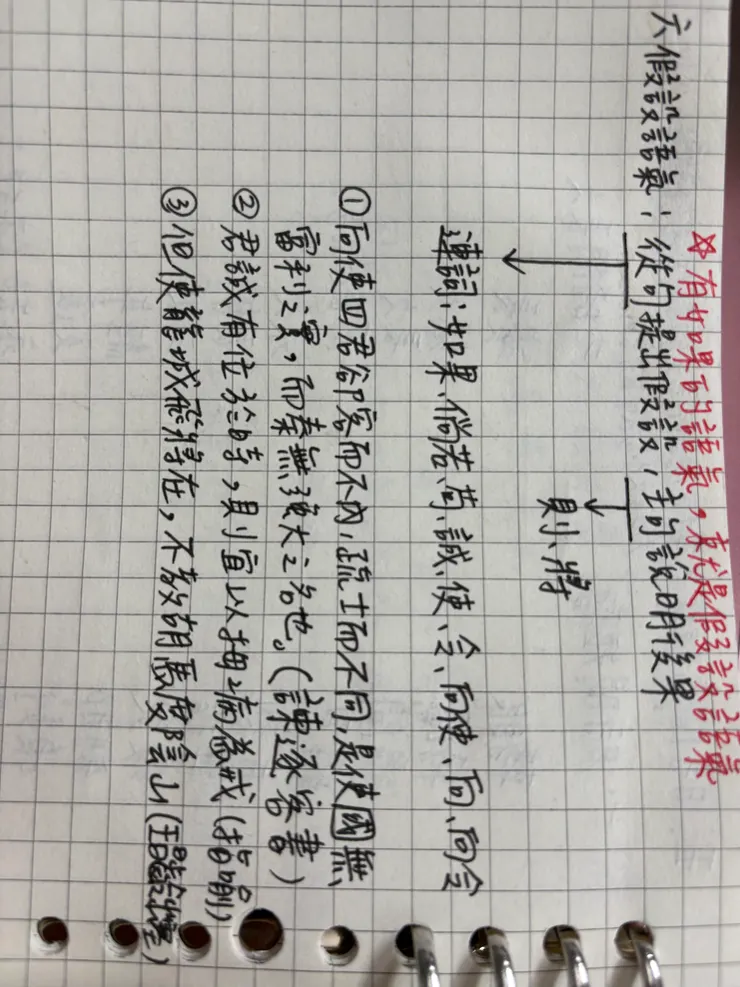 ☆有如果的語氣,就是假設語氣
六假設語氣:從句提出假設,主句說明後果
則、將
連詞:如果、倘若、苟、誠、使、令、向使、向、向令
①向使四君卻客而不內,疏士而不同,是使國無
富利之實,而秦無強大之名也。(諫逐客書)
②君誠有位於時,則宜以拇病為戒(指喻)
③但使龍城飛將在,不教胡馬度陰山(王